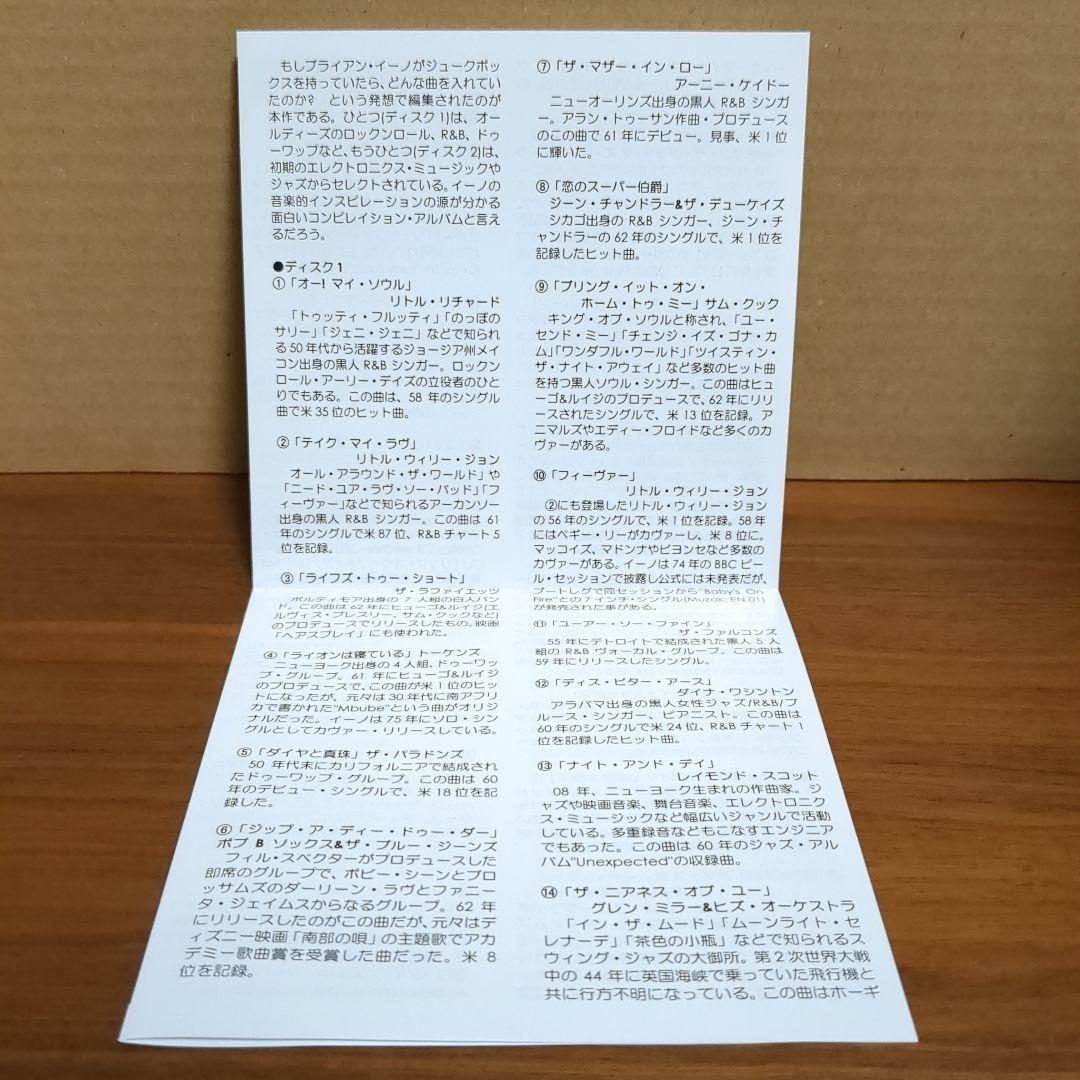 もしブライアン・イーノがジュークボッ
クスを持っていたら、どんな曲を入れてい
たのか? という発想で編集されたのが
本作である。ひとつ(ディスク1)は、オー
ルディーズのロックンロール、R&B、ドゥ
ーワップなど、もうひとつ(ディスク2)は、
初期のエレクトロニクス・ミュージックや
ジャズからセレクトされている。イーノの
音楽的インスピレーションの源が分かる
面白いコンピレイション・アルバムと言え
るだろう。
●ディスク1
①「オー! マイ・ソウル」
リトル・リチャード
「トゥッティ・フルッティ」「のっぽの
サリー」「ジェニ・ジェニ」などで知られ
る50年代から活躍するジョージア州メイ
コン出身の黒人R&Bシンガー。ロックン
ロール・アーリー・デイズの立役者のひと
りでもある。この曲は、58年のシングル
曲で米35位のヒット曲。
②「テイク・マイ・ラヴ」
リトル・ウィリー・ジョン
オール・アラウンド・ザ・ワールド」や
「ニード・ユア・ラヴ・ソー・バッド」「フ
ィーヴァー」などで知られるアーカンソー
出身の黒人 R&B シンガー。この曲は 61
年のシングルで米87位、R&Bチャート5
位を記録。
③「ライフズ・トゥー・ショート」
ザ・ラファイエッツ
ボルティモア出身の 7 人組の白人バン
ド。この曲は62年にヒューゴ&ルイジ(エ
ルヴィス・プレスリー、サム・クックなど)
のプロデュースでリリースしたもの。映画
「ヘアスプレイ」にも使われた。
④「ライオンは寝ている」トーケンズ
ニューヨーク出身の4人組、ドゥーワッ
プ・グループ。61 年にヒューゴ&ルイジ
のプロデュースで、この曲が米1位のヒッ
トになったが、元々は30年代に南アフリ
カで書かれた"Mbube"という曲がオリジ
ナルだった。イーノは75年にソロ・シン
グルとしてカヴァー・リリースしている。
⑤「ダイヤと真珠」ザ・パラドンズ
50 年代末にカリフォルニアで結成され
たドゥーワップ・グループ。この曲は 60
年のデビュー・シングルで、米18位を記
録した。
⑥「ジップ・ア・ディー・ドゥー・ダー」
ボブ B ソックス&ザ・ブルー・ジーンズ
フィル・スペクターがプロデュースした
即席のグループで、ボビー・シーンとブロ
ッサムズのダーリーン・ラヴとファニー
タ・ジェイムスからなるグループ。62 年
にリリースしたのがこの曲だが、元々はデ
ィズニー映画「南部の唄」の主題歌でアカ
デミー歌曲賞を受賞した曲だった。米 8
位を記録。
⑦「ザ・マザー・イン・ロー」
アーニー・ケイドー
ニューオーリンズ出身の黒人 R&B シンガ
ー。アラン・トゥーサン作曲・プロデュース
のこの曲で61年にデビュー。見事、米1位
に輝いた。
⑧「恋のスーパー伯爵」
ジーン・チャンドラー&ザ・デューケイズ
シカゴ出身の R&B シンガー、ジーン・チ
ャンドラーの62年のシングルで、米1位を
記録したヒット曲。
⑨「ブリング・イット・オン・
ホーム・トゥ・ミー」サム・クック
キング・オブ・ソウルと称され、「ユー・
センド・ミー」「チェンジ・イズ・ゴナ・カ
ム」「ワンダフル・ワールド」「ツイスティン・
ザ・ナイト・アウェイ」など多数のヒット曲
を持つ黒人ソウル・シンガー。この曲はヒュ
ーゴ&ルイジのプロデュースで、62年にリリ
ースされたシングルで、米13位を記録。ア
ニマルズやエディー・フロイドなど多くのカ
ヴァーがある。
⑩「フィーヴァー」
リトル・ウィリー・ジョン
②にも登場したリトル・ウィリー・ジョン
の56年のシングルで、米1位を記録。58年
にはペギー・リーがカヴァーし、米8位に。
マッコイズ、マドンナやビヨンセなど多数の
カヴァーがある。イーノは74年のBBCピー
ル・セッションで披露し公式には未発表だが、
ブートレグで同セッションから"Baby's On
Fire"との7インチ・シングル(Muzak: EN 01)
が発売された事がある。
⑪「ユーアー・ソー・ファイン」
ザ・ファルコンズ
55年にデトロイトで結成された黒人5人
組の R&B ヴォーカル・グループ。この曲は
59年にリリースしたシングル。
⑫「ディス・ビター・アース」
ダイナ・ワシントン
アラバマ出身の黒人女性ジャズ/R&B/ブ
ルース・シンガー、ピアニスト。この曲は
60年のシングルで米24位、R&Bチャート1
位を記録したヒット曲。
⑬「ナイト・アンド・デイ」
レイモンド・スコット
08 年、ニューヨーク生まれの作曲家。ジ
ャズや映画音楽、舞台音楽、エレクトロニク
ス・ミュージックなど幅広いジャンルで活動
している。多重録音などもこなすエンジニア
でもあった。この曲は 60 年のジャズ・アル
バム"Unexpected"の収録曲。
⑭「ザ・ニアネス・オブ・ユー」
グレン・ミラー&ヒズ・オーケストラ
「イン・ザ・ムード」「ムーンライト・セ
レナーデ」「茶色の小瓶」などで知られるス
ウィング・ジャズの大御所。第2次世界大戦
中の 44 年に英国海峡で乗っていた飛行機と
共に行方不明になっている。この曲はホーギ